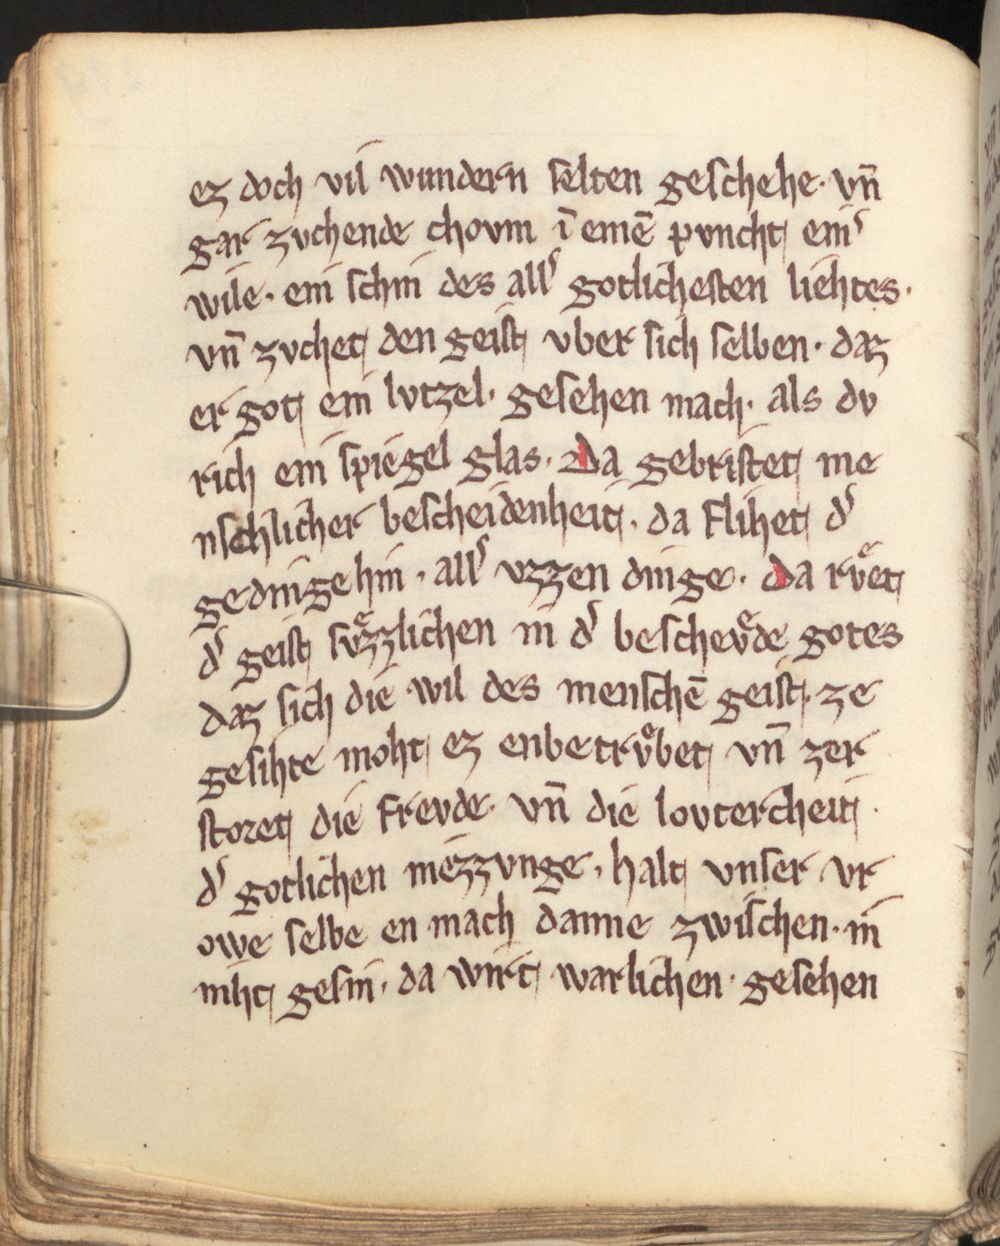 ez doch vil wundern selten geschehe · vn̄
gar zvchende chovm ī einē pvncht ein͛
wile · ein schin des all͛ gotlichesten liehtes ·
vn̄ zvchet den geist vber sich selben · daz
er got ein lvtzel · gesehen mach · als dv
rich ein spiegel glas · Da gebristet me
nschlicher bescheidenheit · da flihet d͛
gedinge hin · all͛ vzzen dinge · Da rvͤet
d͛ geist svͤzzlichen in d͛ beschevͦde gotes
daz sich die wil des menschē geist · ze
gesihte moht ez enbetrvͦbet vn̄ zer
storet die frevde · vn̄ die lovtercheit ·
d͛ gotlichen mezzvnge · halt vnser vr
owe selbe en mach danne zwischen · in
niht gesin · da wirt warlichen · gesehen